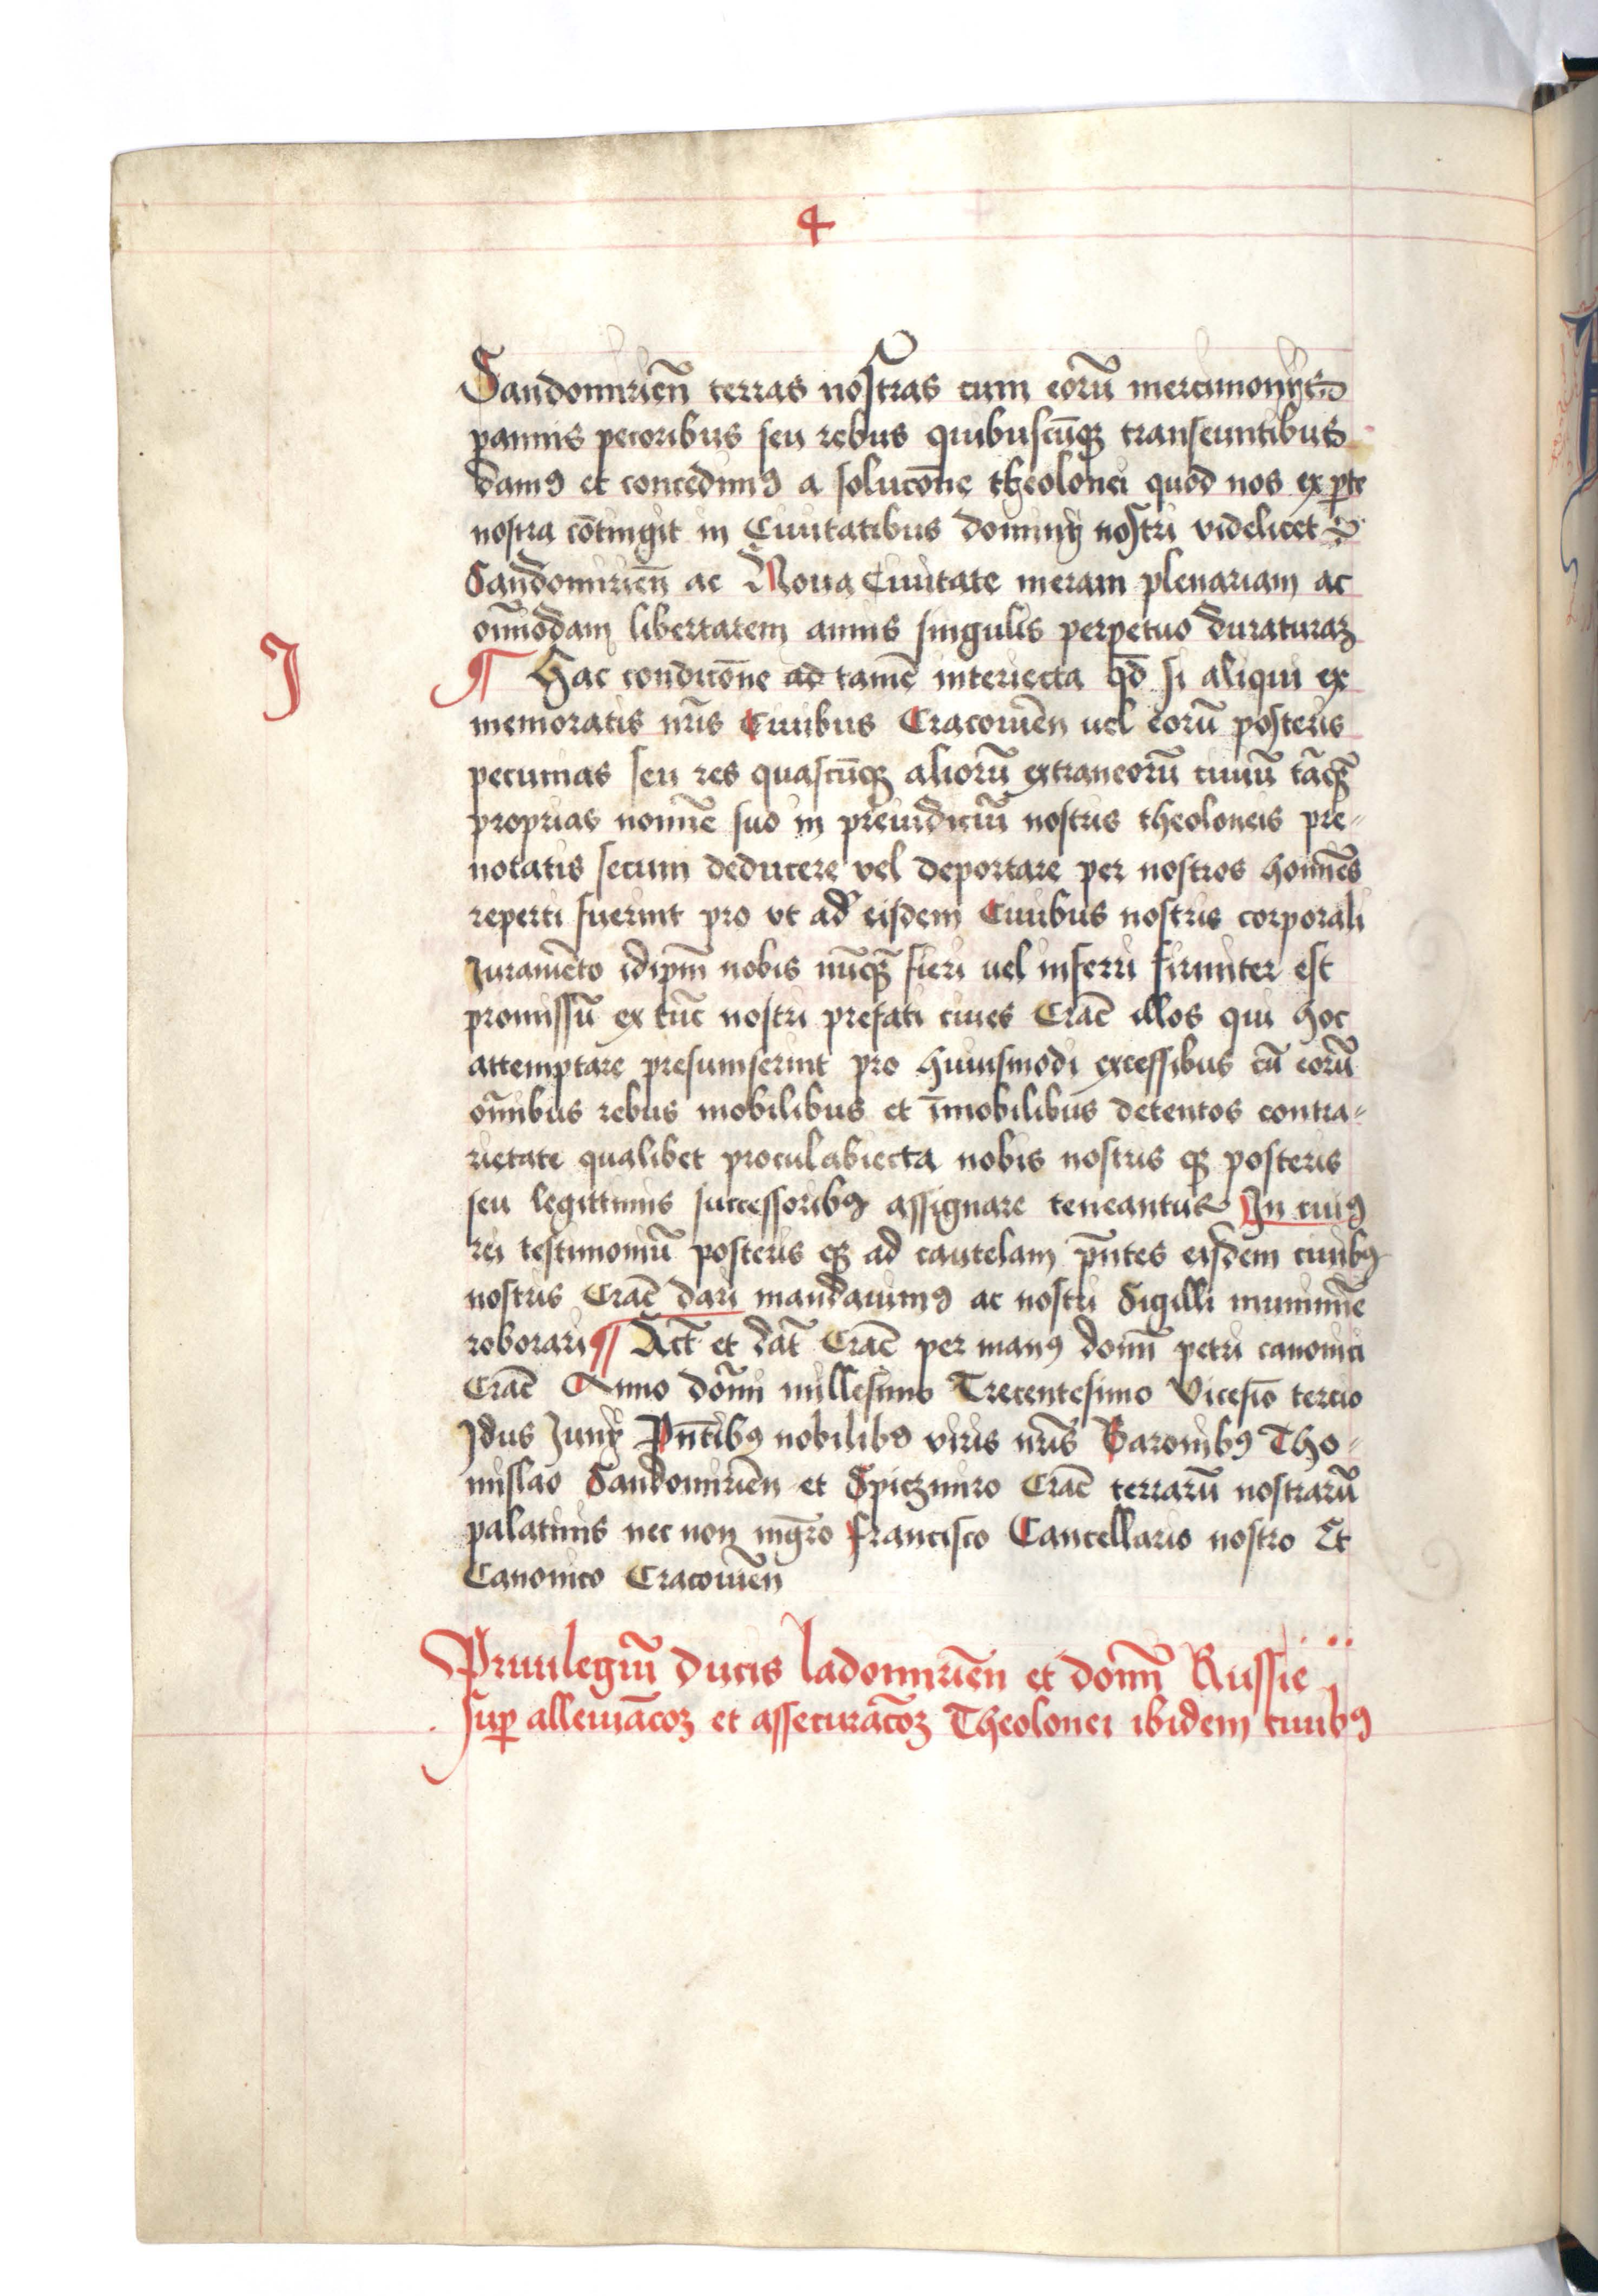 4
Sandomirien̄ terras nostras cum eorū mercimonijs
pannis pecoribus seu rebus quibuscūqꝫ transeuntibus
damꝯ et concedimꝯ a solucōne theolonei quod nos ex ꝑte
nostra cōtingit in Ciuitatibus dominij nostri videlicet
Sandomirien̄ ac Noua Ciuitate meram plenariam ac
om̄imodam libertatem annis singulis perpetuo duraturaꝫ
J
¶ Hac condicōne ad tamē interiecta qd̄ si aliqui ex
memoratis nr̄is Ciuibus Cracouien̄ uel eorū posteris
pecunias seu res quascūqꝫ aliorū extraneorū ciuiū tāqꝫ̄
proprias nomīe suo in preiudiciū nostris theoloneis pre⸗
notatis secum deducere vel deportare per nostros homīes
reperti fuerint pro vt ad eisdem Ciuibus nostris corporali
Juramēto idip̄m nobis nūqꝫ̄ fieri uel inferri firmiter est
promissū ex tūc nostri prefati ciues Crac̄ illos qui hoc
attemptare presumserint pro huiusmodi excessibus cū eorū
om̄ibus rebus mobilibus et īmobilibus detentos contra⸗
rietate qualibet proculabiecta nobis nostris qꝫ posteris
seu legittimis successoribꝯ assignare teneantur In cuiꝯ
rei testimoniū posteris qꝫ ad cautelam pn̄tes eisdem ciuibꝯ
nostris Crac̄ dari mandauimꝯ ac nostri Sigilli munimīe
roborari ¶ Act̄ et dat̄ Crac̄ per manꝯ domī petri canonici
Crac̄ Anno dōmi millesimo Trecentesimo Vicesīo tercio
Jdus Junij Pn̄tibꝯ nobilibꝯ viris nr̄is Baronibꝯ Tho⸗
mislao Sandomirien̄ et Spiczmiro Crac̄ terrarū nostrarū
palatinis nec non mgr̄o francisco Cancellario nostro Et
Canonico Cracouien̄
Priuilegiū ducis ladomirien̄ et domī Russie
suꝑ alleuiac̄oꝫ et assecurac̄oꝫ Theolonei ibidem ciuibꝯ